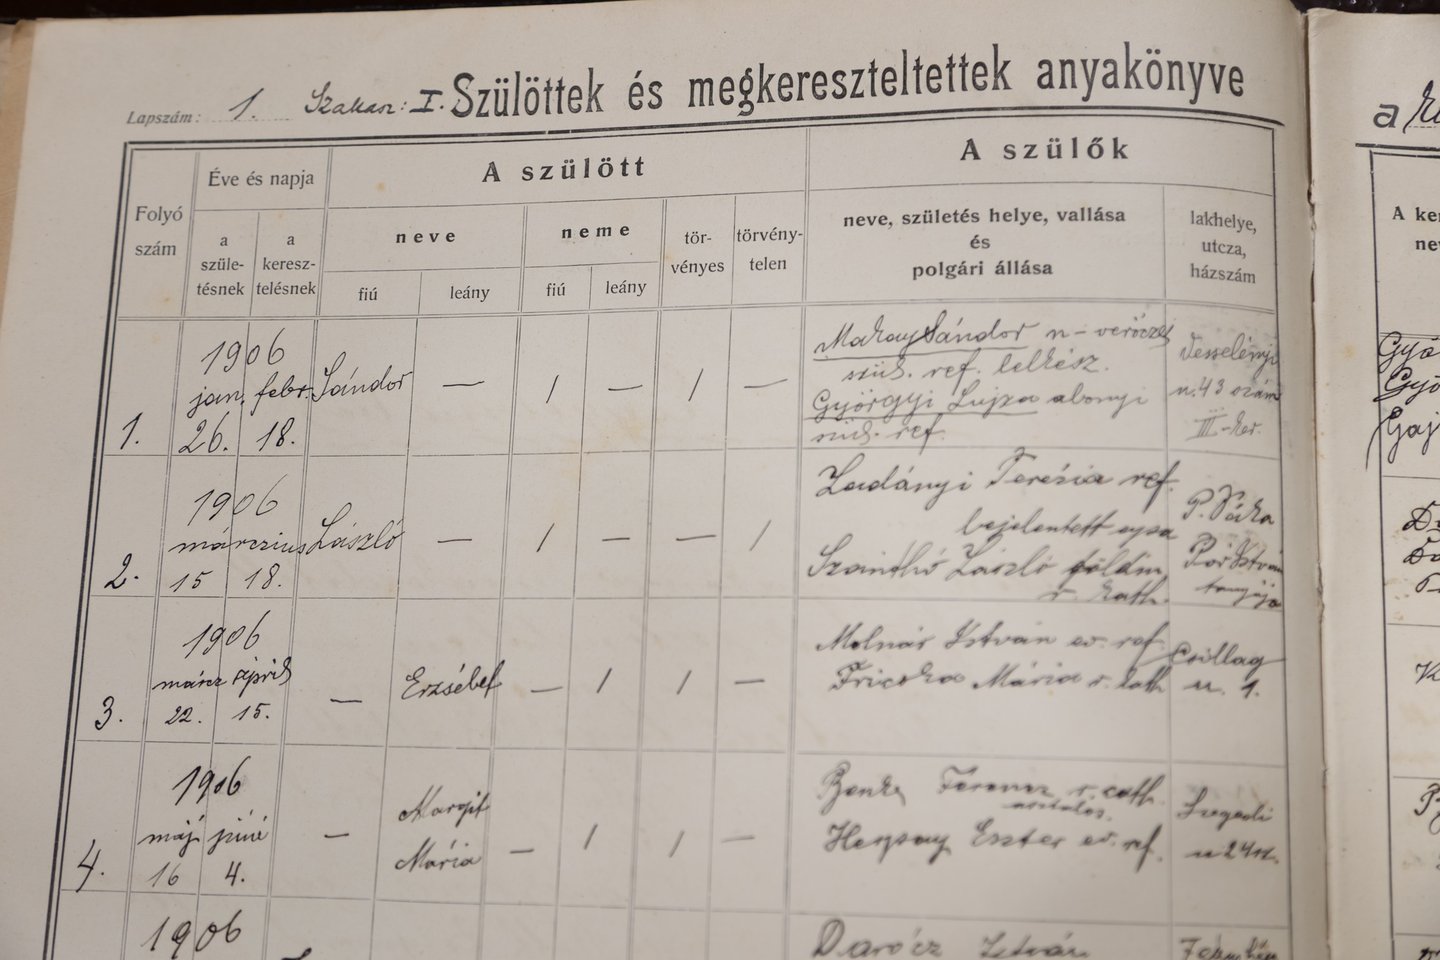 Lapszám: 1. Szakasz: I. Szülöttek és megkereszteltettek anyakönyve
Folyó szám
Éve és napja
a szüle-tésnek
a keresz-telésnek
A szülött
neve
fiú
leány
neme
fiú
leány
tör-vényes
törvény-telen
A szülők
neve, születés helye, vallása
és
polgári állása
lakhelye,
utcza,
házszám
1.
1906
jan. febr.
26. 18.
Sándor — / — / —
Makay Sándor n-verőczei
szül. ref. lelkész.
Györgyi Lujza abonyi
szül. ref.
Vesselényi
u. 43 szám
III-ker.
2.
1906
márczius
15 18.
László — / — — /
Ladányi Terézia ref.
bejelentett apa
Szánthó László földm
r. kath.
P.
István
tanyája
3.
1906
márcz ápril
22. 15.
— Erzsébet — / / —
Molnár István ev. ref
Fricska Mária r. kath
Csillag
u. 1.
4.
1906
máj
16 4.
— Margit
Mária — / / —
Ferencz r. cath.
asztalos.
Eszter ev. ref.
Szegedi
u 24 sz.
1906
Darócz István
a
A ke
ne
Győ
Gyö
Gaj